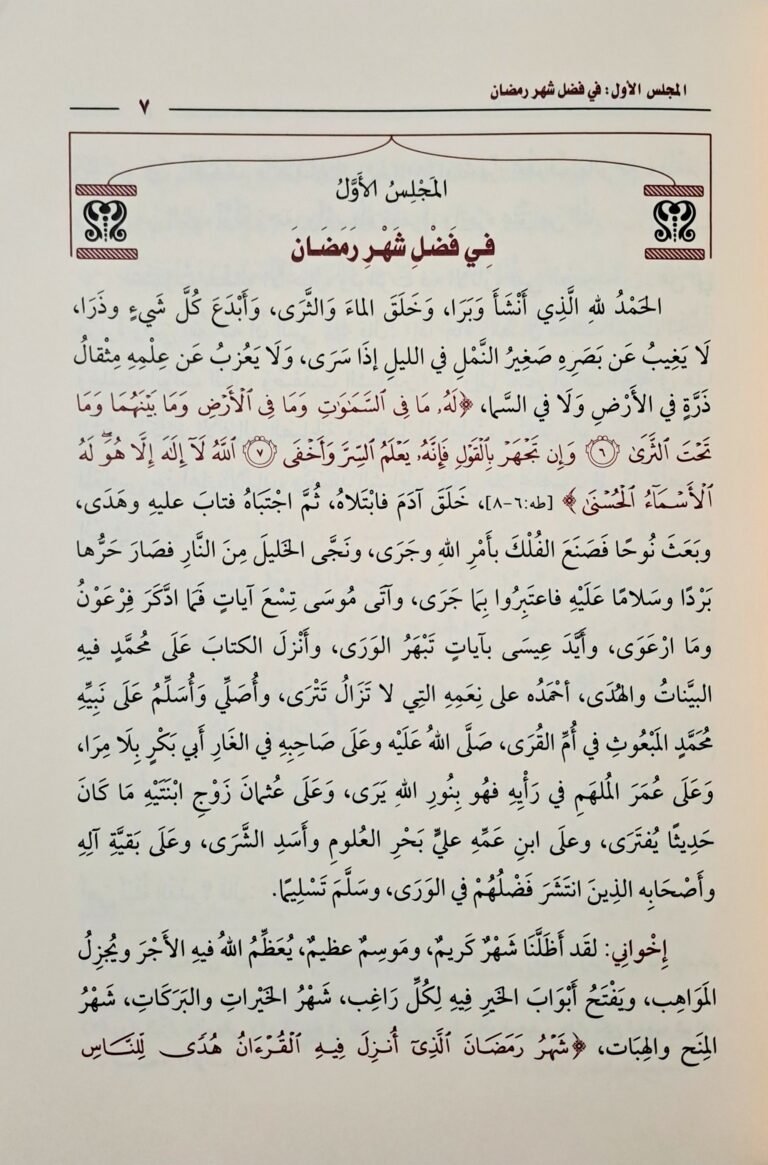 المجلس الأول: في فضل شهر رمضان
٧
المَجْلِسُ الأَوَّلُ
فِي فَضْلِ شَهْرِ رَمَضَانَ
الحَمْدُ للهِ الَّذِي أَنْشَأَ وَبَرَا، وَخَلَقَ الماءَ وَالثَّرَى، وَأَبْدَعَ كُلَّ شَيءٍ وذَرَا،
لَا يَغِيبُ عَن بَصَرِه صَغِيرُ النَّمْلِ في الليلِ إذَا سَرَى، وَلَا يَعْزبُ عَن عِلْمِهِ مِثْقالُ
ذَرَّةٍ في الأَرْضِ وَلَا في السَّما، ﴿لَهُۥ مَا فِى ٱلسَّمَٰوَٰتِ وَمَا فِى ٱلْأَرْضِ وَمَا بَيْنَهُمَا وَمَا
تَحْتَ ٱلثَّرَىٰ ٦ وَإِن تَجْهَرْ بِٱلْقَوْلِ فَإِنَّهُۥ يَعْلَمُ ٱلسِّرَّ وَأَخْفَى ٧ ٱللَّهُ لَآ إِلَٰهَ إِلَّا هُوَۖ لَهُ
ٱلْأَسْمَآءُ ٱلْحُسْنَىٰ﴾ [طه:٦-٨]، خَلَقَ آدَمَ فابْتَلاهُ، ثُمَّ اجْتَبَاهُ فتابَ عليهِ وهَدَى،
وبَعَثَ نُوحًا فَصَنَعَ الفُلْكَ بأَمْرِ اللهِ وجَرَى، ونَجَّى الخَليلَ مِنَ النَّارِ فصَارَ حَرُّها
بَرْدًا وسَلامًا عَلَيْهِ فاعتَبِرُوا بِمَا جَرَى، وآتَى مُوسَى تِسْعَ آياتٍ فَمَا ادَّكَرَ فِرْعَوْنُ
وما ارْعَوَى، وأَيَّدَ عِيسَى بآياتٍ تَبْهَرُ الوَرَى، وأَنْزلَ الكتابَ عَلَى مُحمَّدٍ فيهِ
البيِّناتُ والهُدَى، أحْمَدُه على نِعَمِهِ التِي لا تَزَالُ تَتْرَى، وأُصَلِّي وَأُسَلِّمُ عَلَى نَبِيِّهِ
مُحمَّدٍ المَبْعُوثِ في أُمِّ القُرَى، صَلَّى اللهُ عَلَيْه وعلَى صَاحِبِهِ في الغَارِ أَبي بَكْرٍ بِلَا مِرَا،
وَعَلَى عُمَرَ المُلهَمِ في رَأْيِهِ فهُو بِنُورِ اللهِ يَرَى، وَعَلَى عُثمانَ زَوْجِ ابْنَتَيْهِ مَا كَانَ
حَدِيثًا يُفتَرَى، وعلَى ابنِ عَمِّهِ عليٍّ بَحْرِ العُلومِ وأَسَدِ الشَّرَى، وعلَى بَقيَّةِ آلِهِ
وأَصْحَابِه الذِينَ انتَشَرَ فَضْلُهُمْ في الوَرَى، وسَلَّمَ تَسْلِيمًا.
إخْواني: لقَد أَظَلَّنَا شَهْرٌ كَريمٌ، ومَوسِمٌ عظيمٌ، يُعَظِّمُ اللهُ فيهِ الأَجْرَ ويُجزِلُ
المَوَاهِب، ويَفْتَحُ أَبْوابَ الخَيرِ فِيهِ لِكُلِّ رَاغِب، شَهْرُ الخَيْراتِ والبَرَكَاتِ، شَهْرُ
المِنَحِ والهِبَات، ﴿شَهْرُ رَمَضَانَ ٱلَّذِىٓ أُنزِلَ فِيهِ ٱلْقُرْءَانُ هُدًى لِّلنَّاسِ